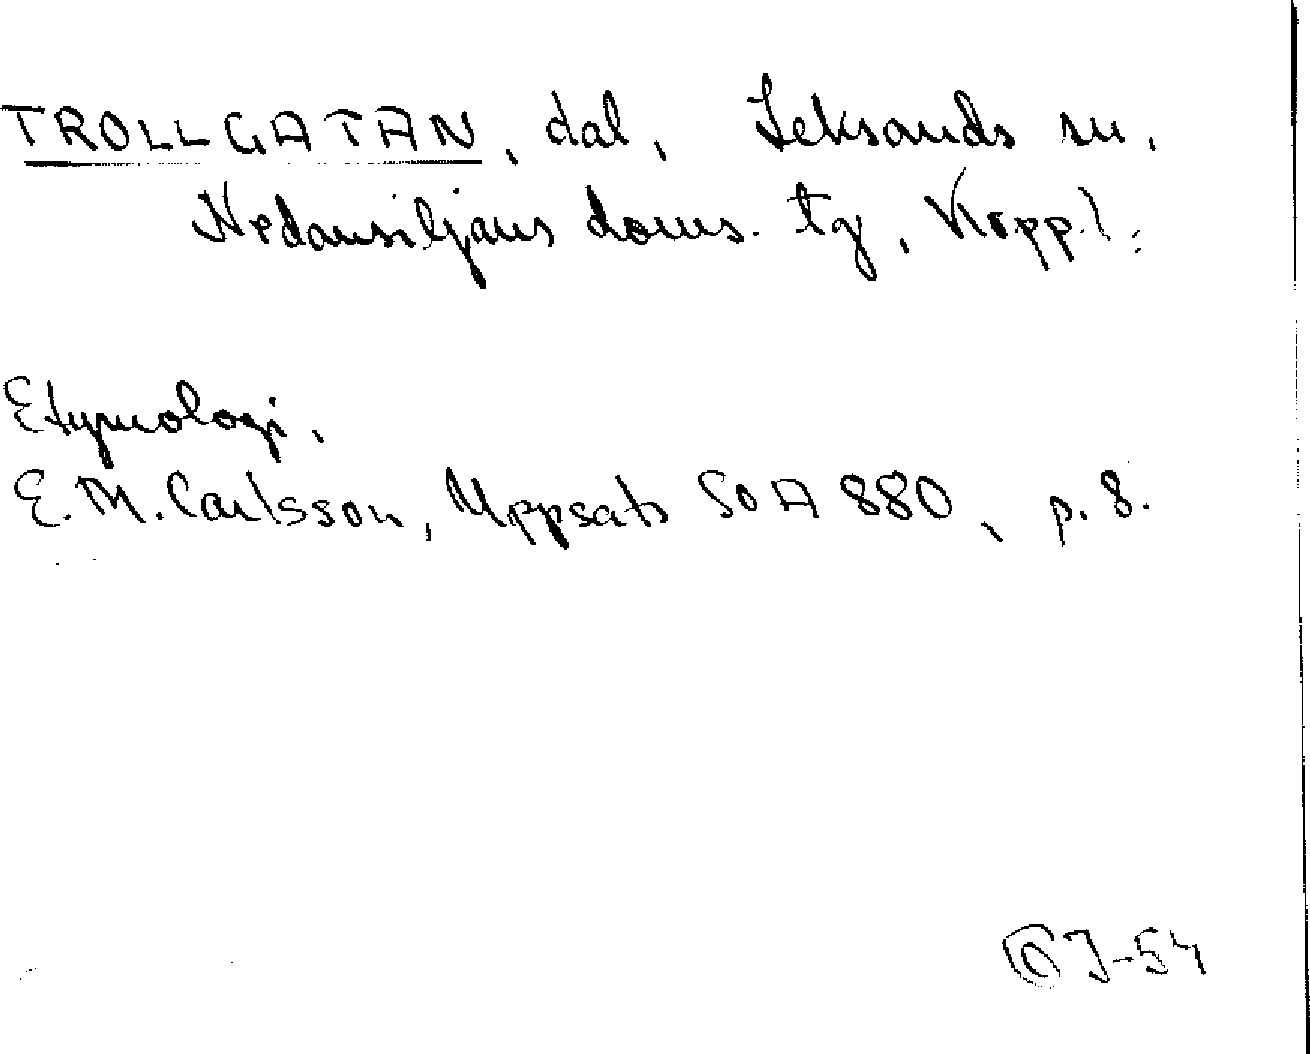 TROLLGATAN, dal, Leksands sn,
Nedansiljans doms. tg, Kopp.l.
Etymologi.
E. M. Carlsson, Uppsats SOA 880, p. 8.
J-54